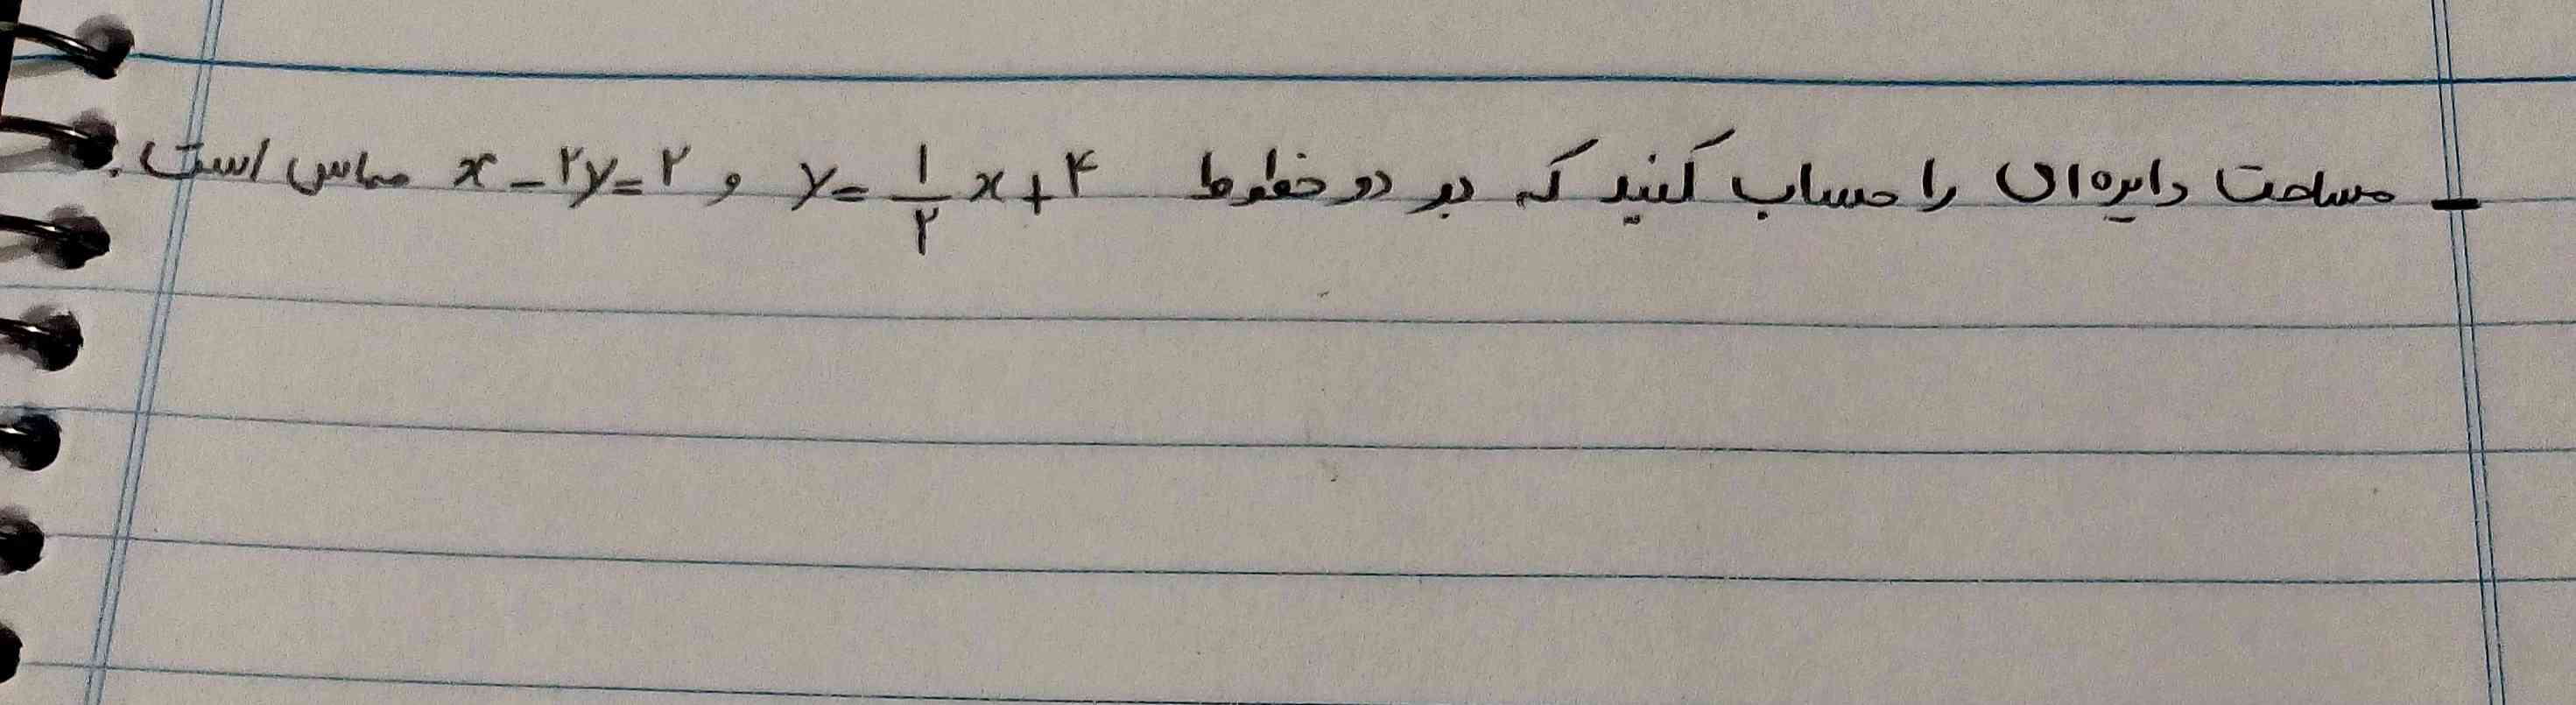 - مساحت دایره‌ای را حساب کنید که بر دو خطوط y = ۱/۲ x + ۴ و x - ۲y = ۲ مماس است.